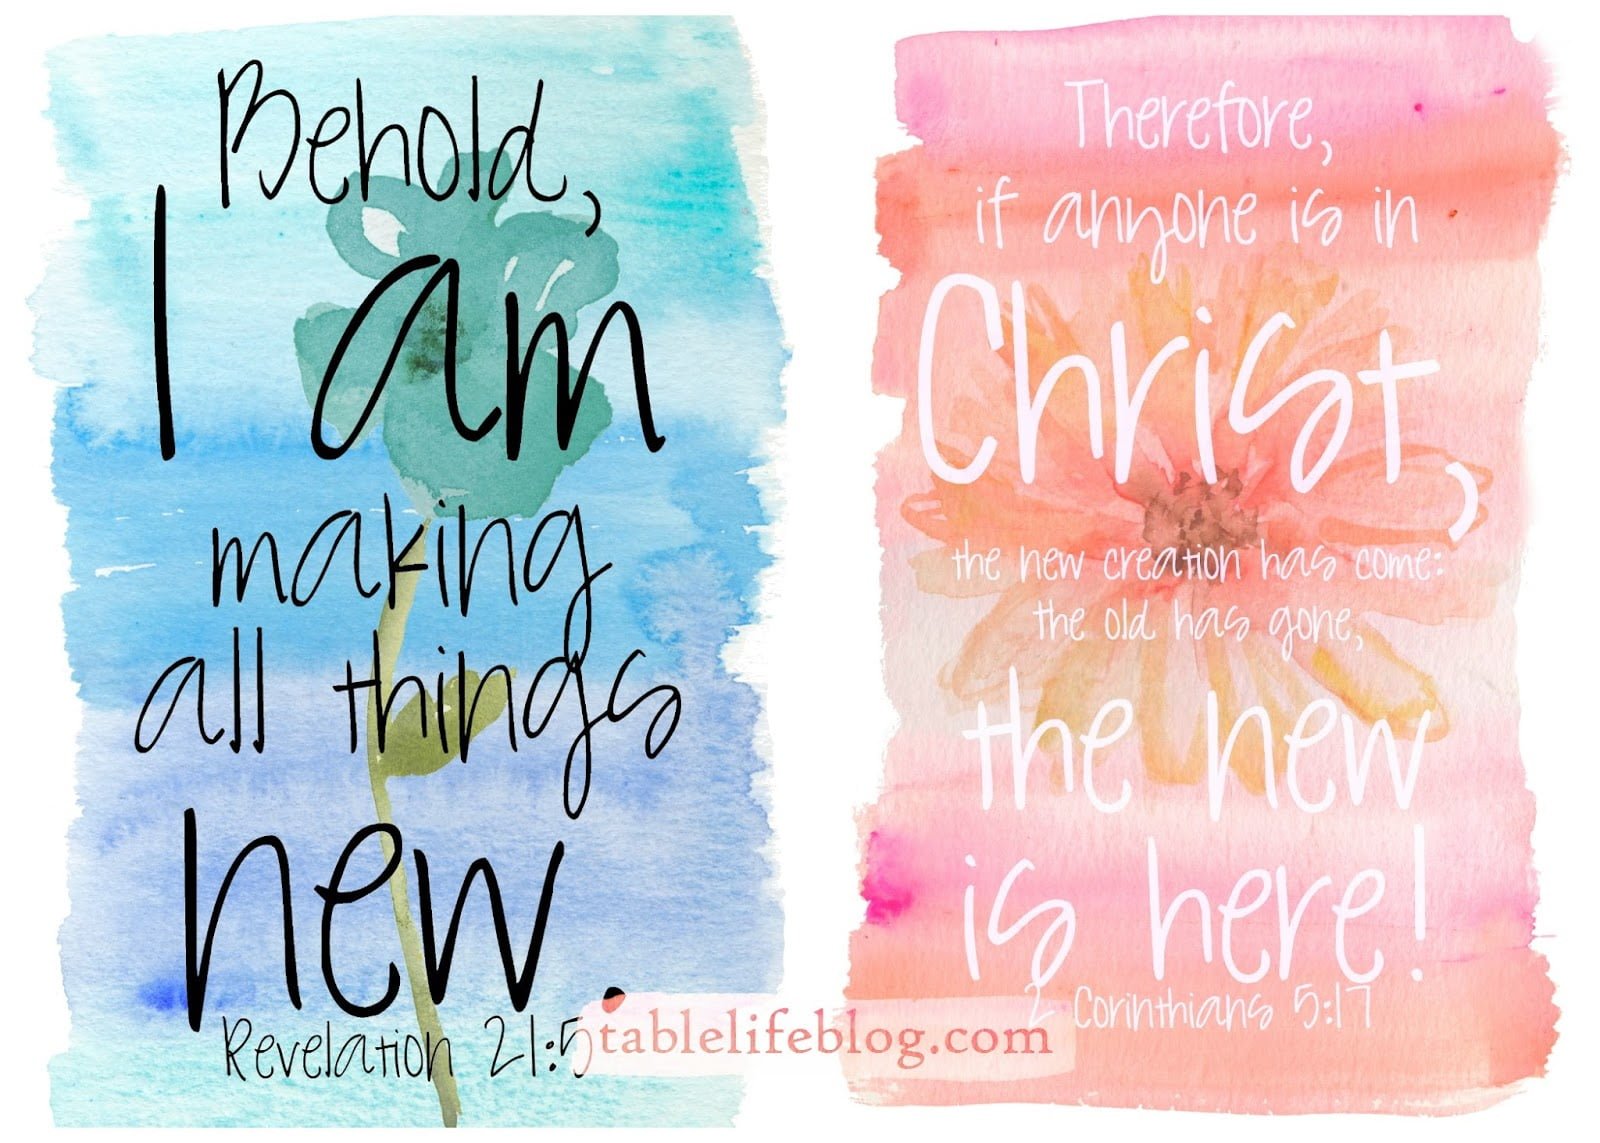 Behold,
I am
making
all things
new.
Revelation 21:5
Therefore,
if anyone is in
Christ,
the new creation has come:
the old has gone,
the new
is here!
2 Corinthians 5:17
tablelifeblog.com